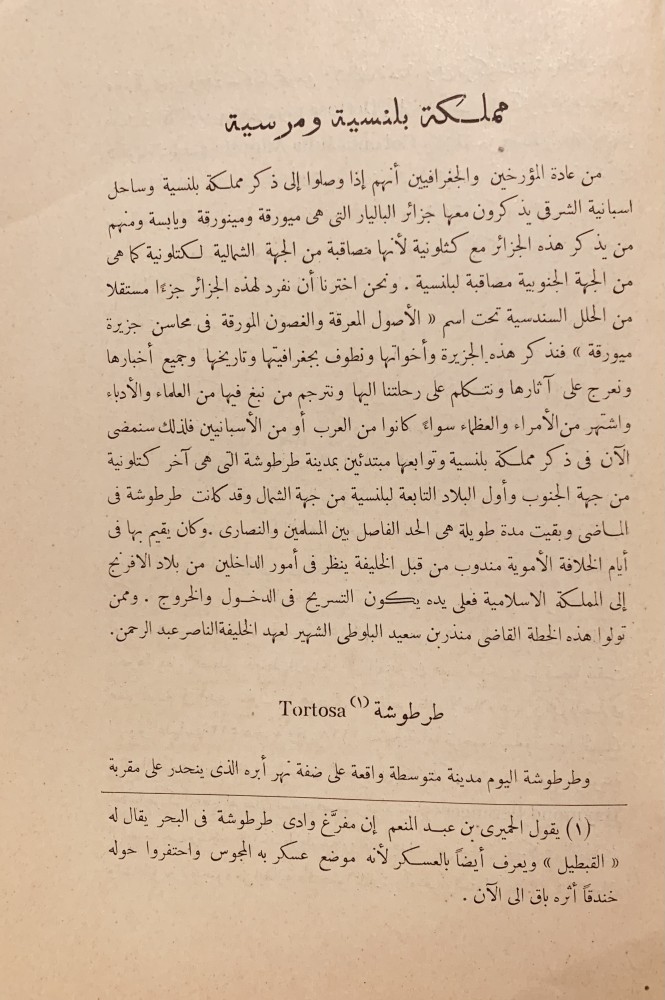 مملكة بلنسية ومرسية
من عادة المؤرخين والجغرافيين أنهم إذا وصلوا إلى ذكر مملكة بلنسية وساحل
اسبانية الشرقى يذكرون معها جزائر الباليار التى هى ميورقة ومينورقة ويابسة ومنهم
من يذكر هذه الجزائر مع كتلونية لأنها مصاقبة من الجهة الشمالية لكتلونية كما هى
من الجهة الجنوبية مصاقبة لبلنسية . ونحن اخترنا أن نفرد لهذه الجزائر جزءًا مستقلا
من الحلل السندسية تحت اسم « الأصول المعرقة والغصون المورقة فى محاسن جزيرة
ميورقة » فنذكر هذه الجزيرة وأخواتها ونطوف بجغرافيتها وتاريخها وجميع أخبارها
ونعرج على آثارها ونتكلم على رحلتنا اليها ونترجم من نبغ فيها من العلماء والأدباء
واشتهر من الأمراء والعظماء سواءً كانوا من العرب أو من الأسبانيين فلذلك سنمضى
الآن فى ذكر مملكة بلنسية وتوابعها مبتدئين بمدينة طرطوشة التى هى آخر كتلونية
من جهة الجنوب وأول البلاد التابعة لبلنسية من جهة الشمال وقد كانت طرطوشة فى
الماضى وبقيت مدة طويلة هى الحد الفاصل بين المسلمين والنصارى . وكان يقيم بها فى
أيام الخلافة الأموية مندوب من قبل الخليفة ينظر فى أمور الداخلين من بلاد الافرنج
إلى المملكة الاسلامية فعلى يده يكون التسريح فى الدخول والخروج . وممن
تولوا هذه الخطة القاضى منذر بن سعيد البلوطى الشهير لعهد الخليفة الناصر عبد الرحمن.
طرطوشة (١) Tortosa
وطرطوشة اليوم مدينة متوسطة واقعة على ضفة نهر أبره الذى ينحدر على مقربة
(١) يقول الحميرى بن عبد المنعم إن مفرَّغ وادى طرطوشة فى البحر يقال له
« القبطيل » ويعرف أيضاً بالعسكر لأنه موضع عسكر به المجوس واحتفروا حوله
خندقاً أثره باق الى الآن .